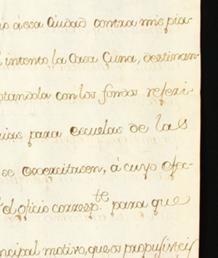 a essa Ciudad contra mis pia-
intento la Casa Cuna, destinan
otandola con los fondos referi-
para escuelas de las
se exercitasen, á cuyo efec-
el oficio corresp.te para que
ncipal motivo, que os propusisteis